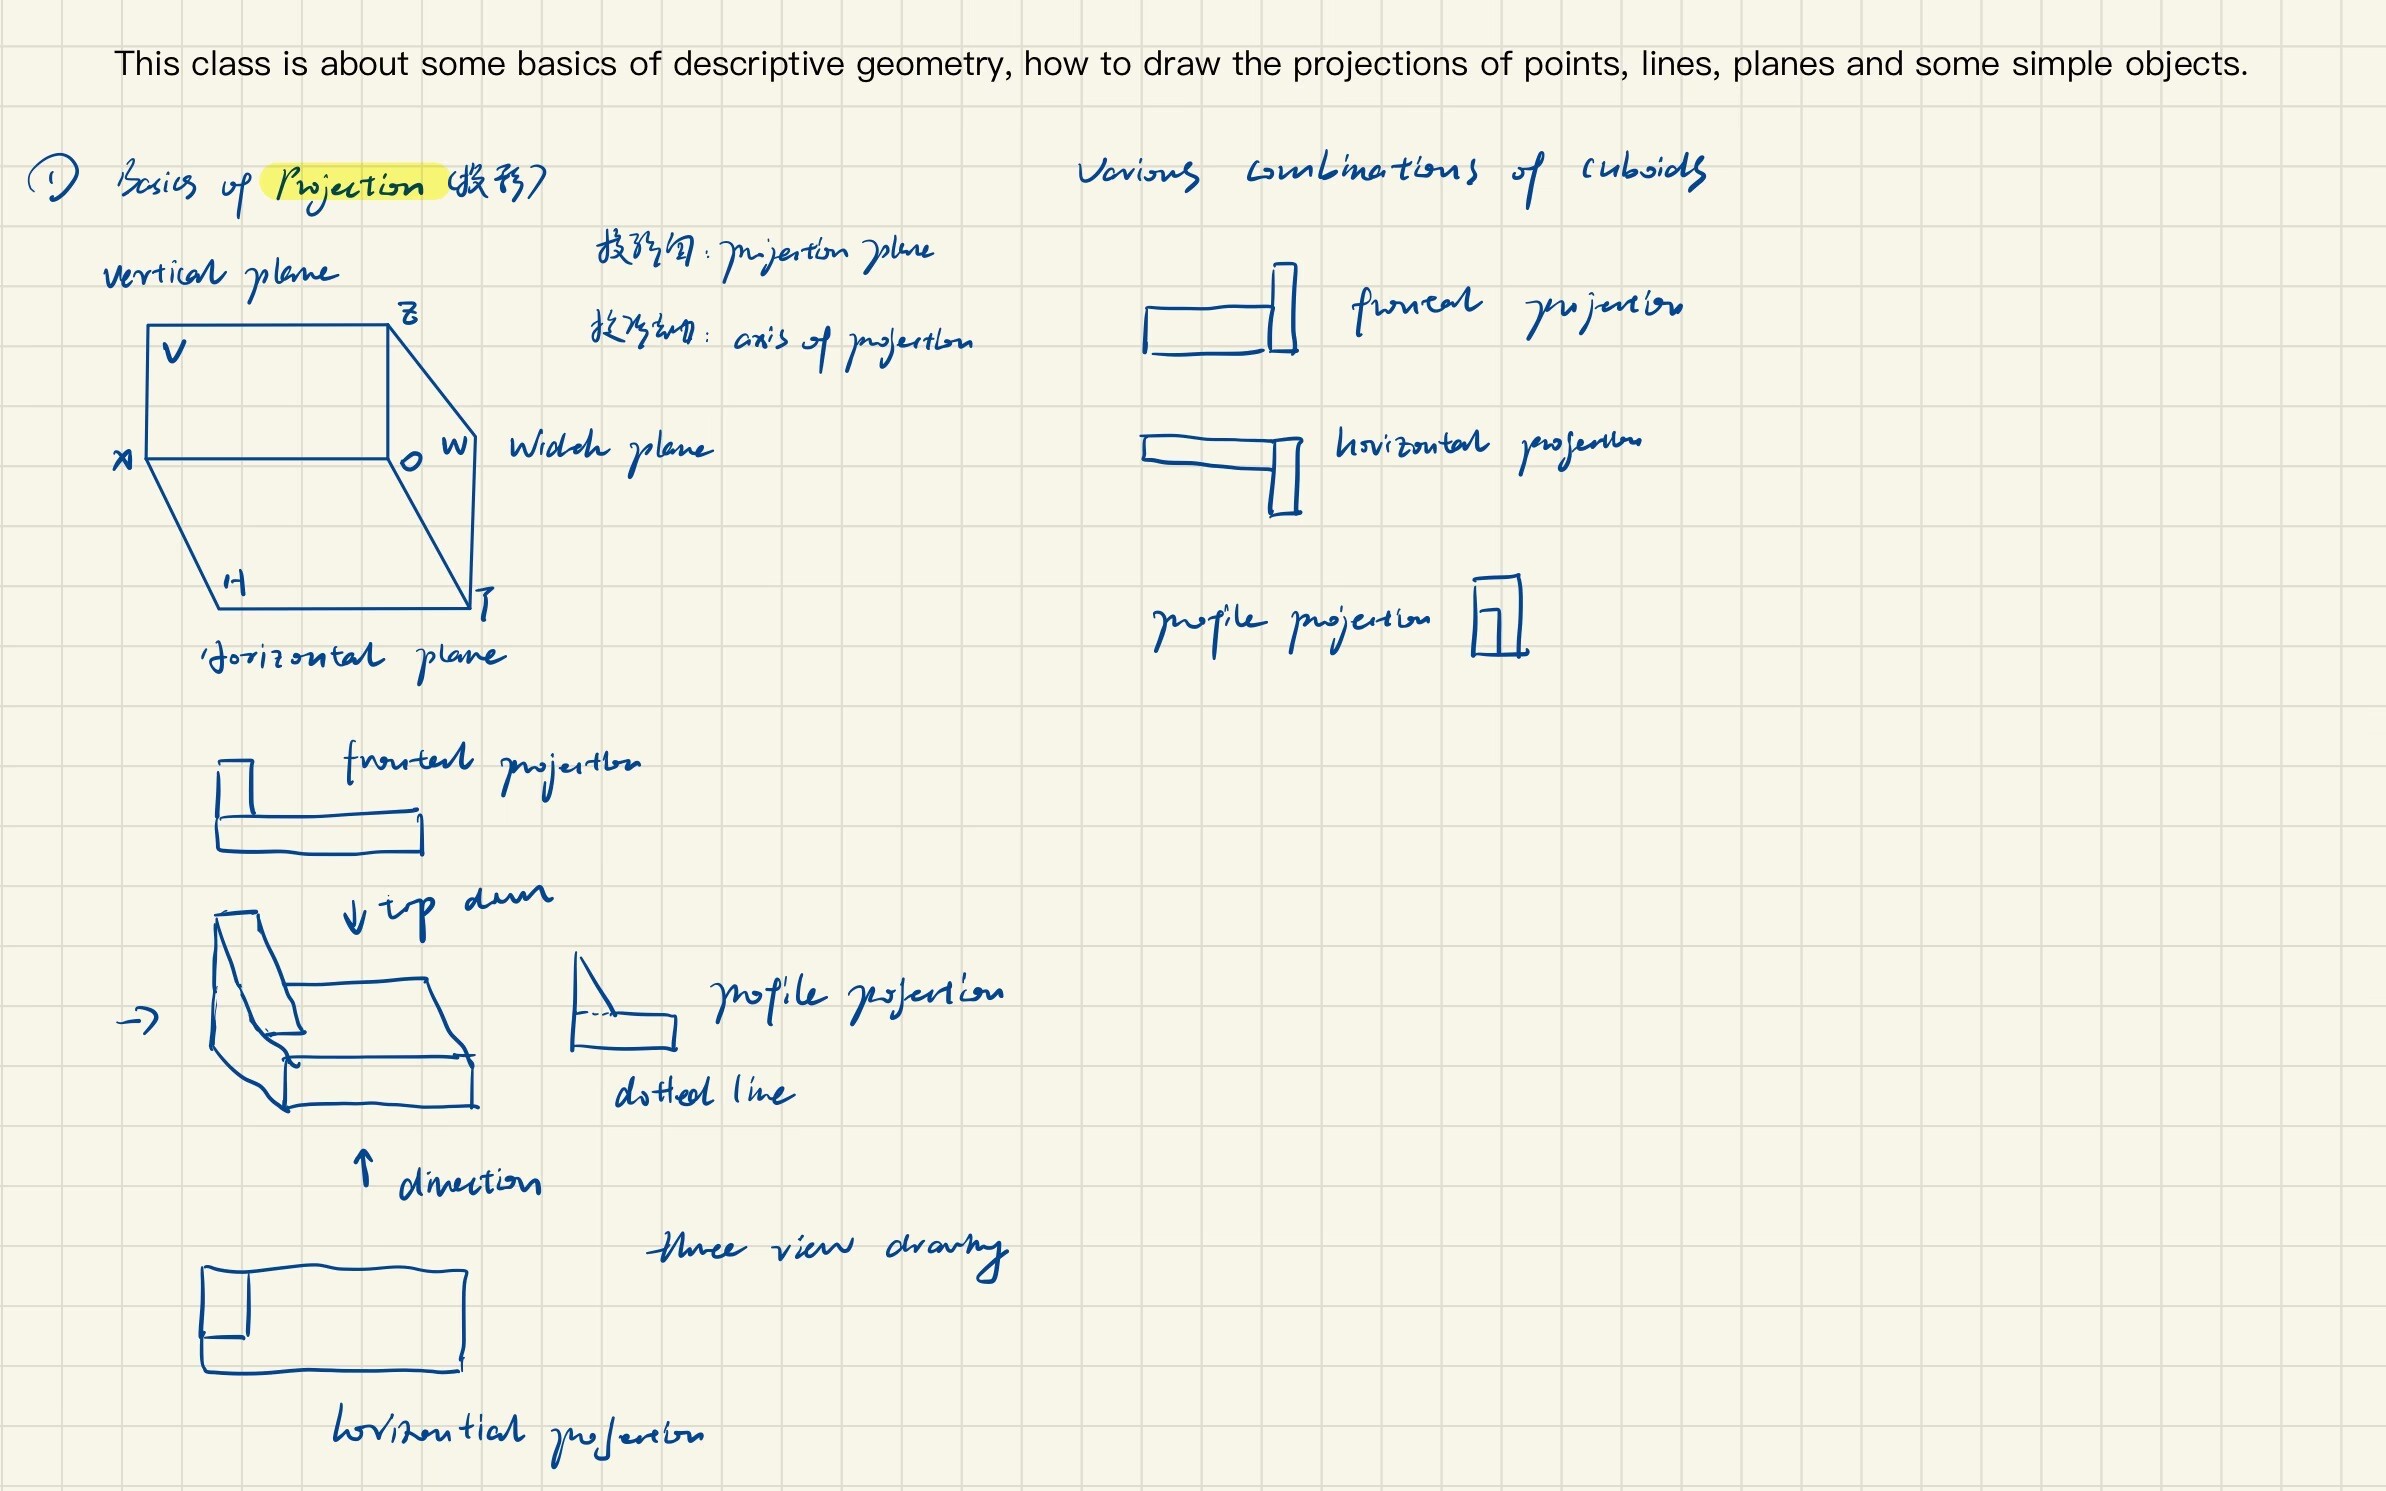 This class is about some basics of descriptive geometry, how to draw the projections of points, lines, planes and some simple objects.
① Basics of Projection (投形)
vertical plane
投影面: projection plane
投影轴: axis of projection
Z
V
X
O
W
Width plane
H
Y
Horizontal plane
frontal projection
↓ top down
→
profile projection
dotted line
↑ direction
three view drawing
horizontial projection
Various combinations of cuboids
frontal projection
horizontal projection
profile projection